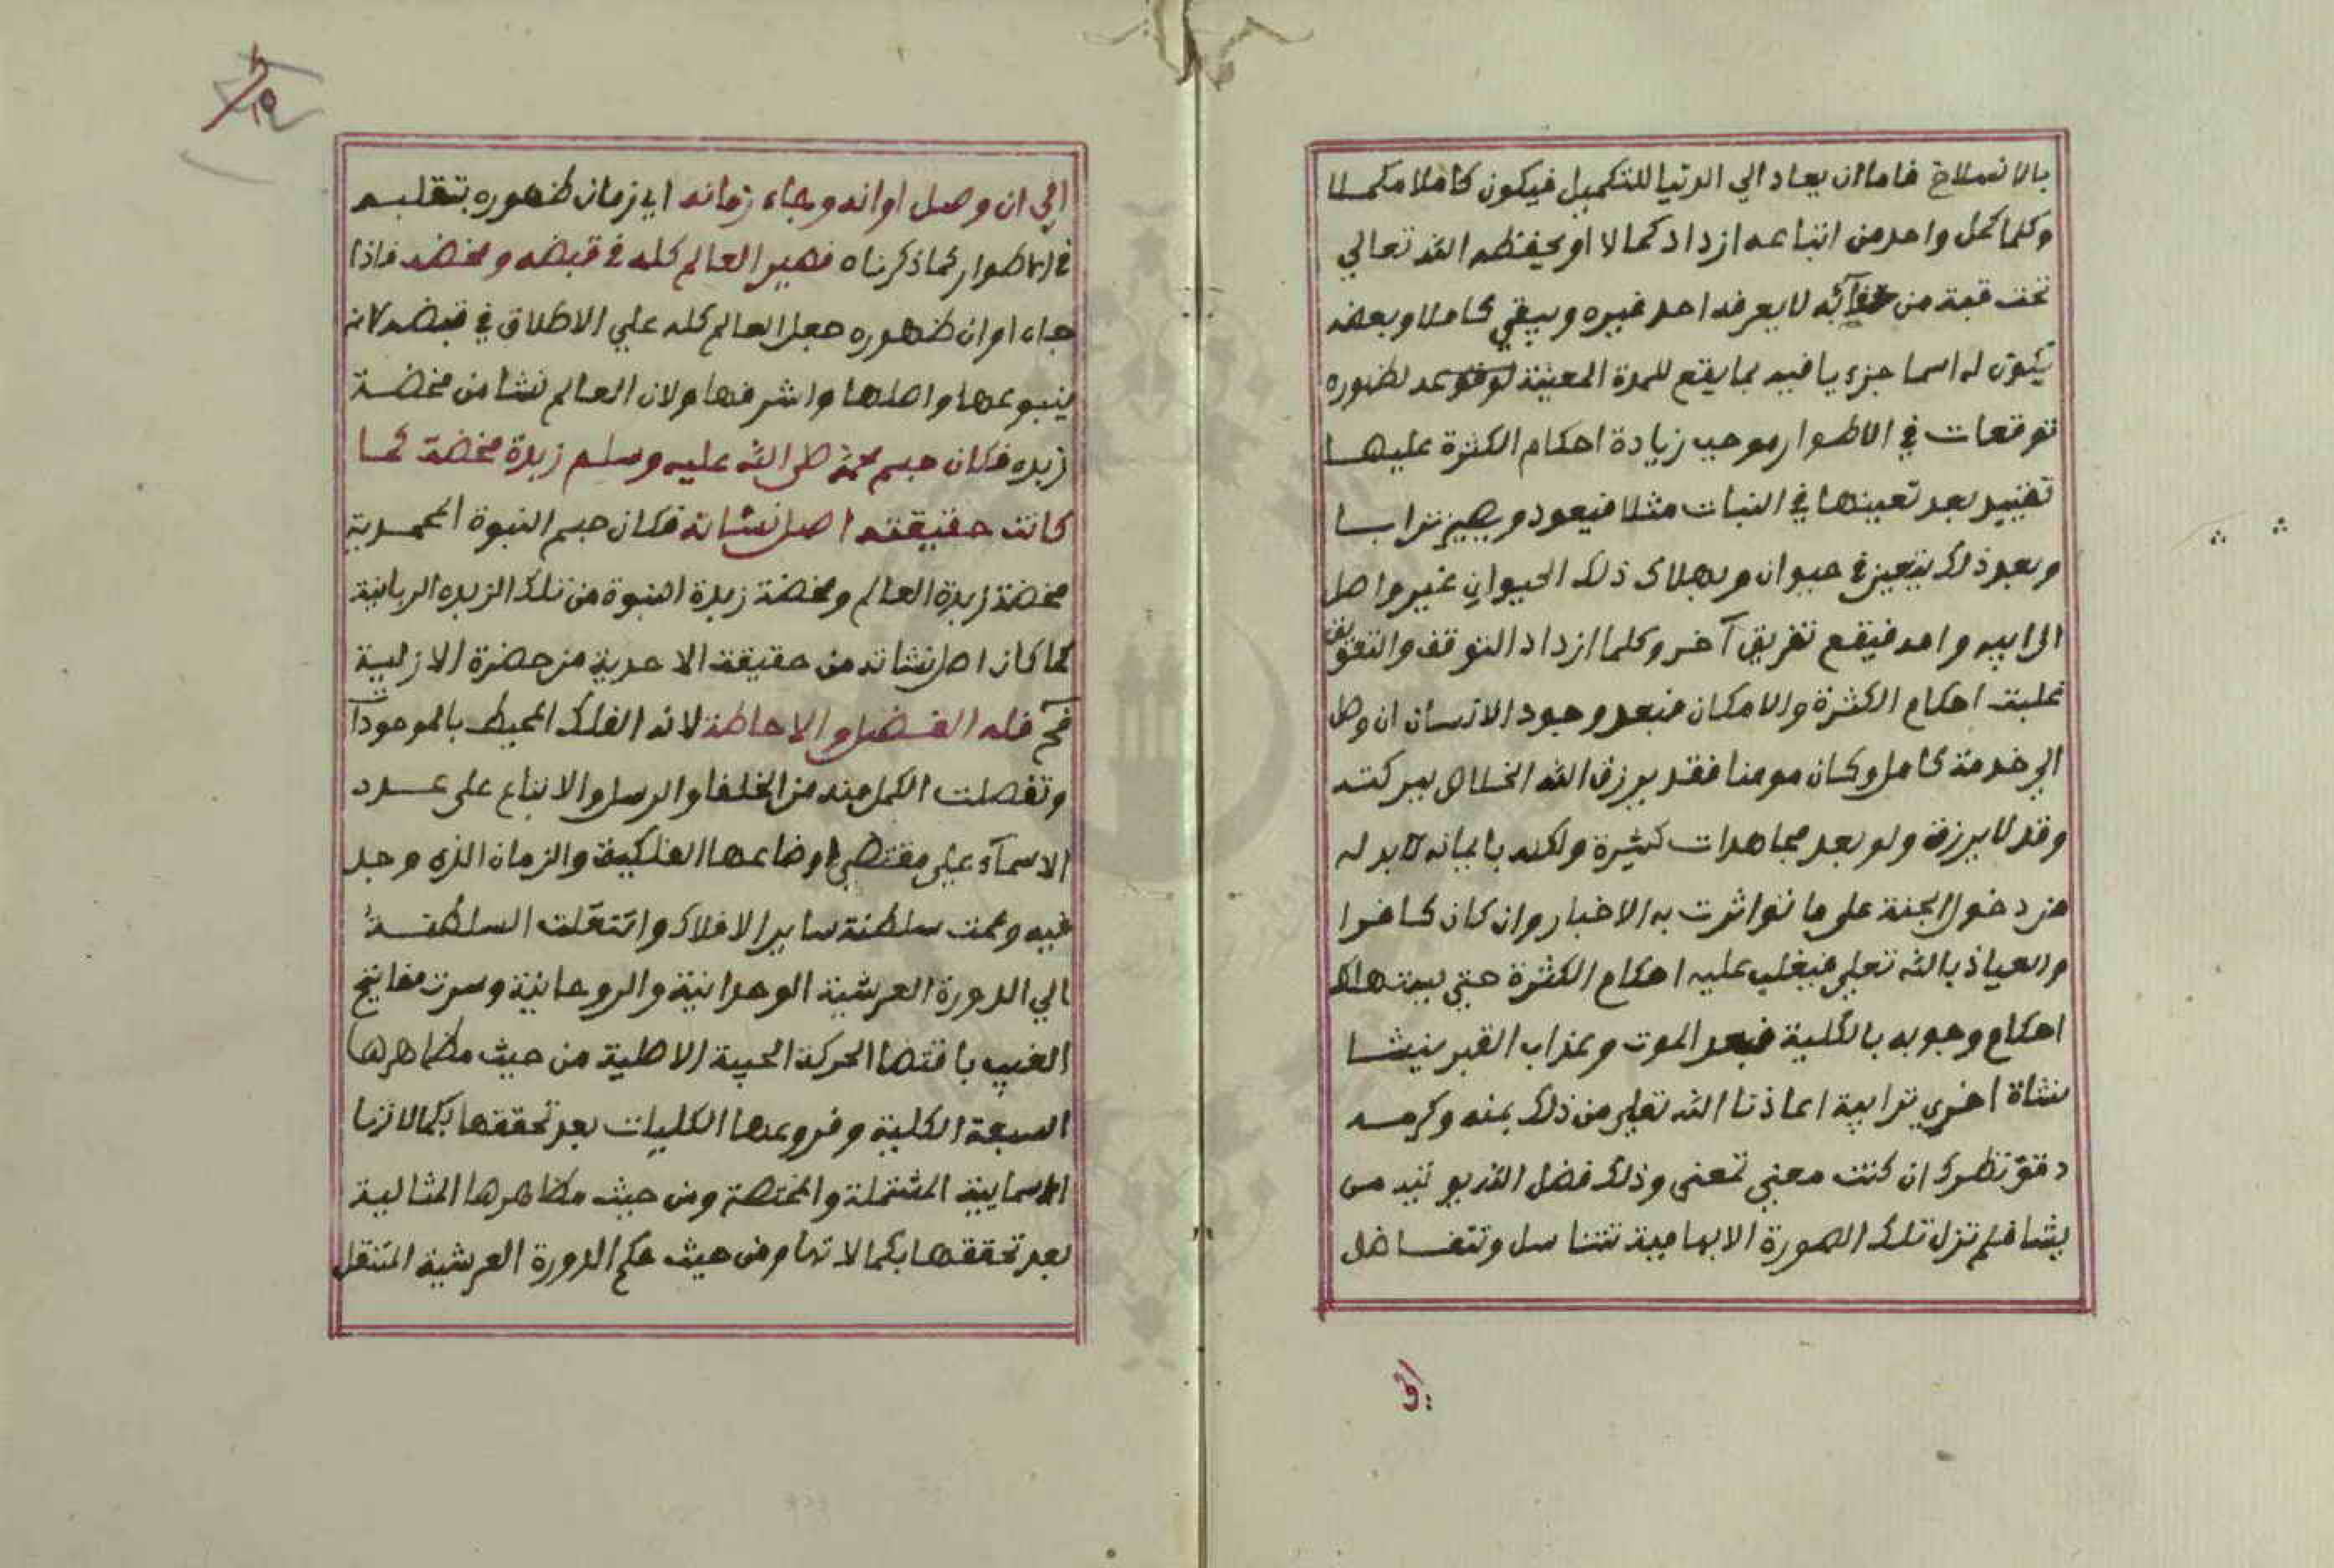 بالانسلاخ فاما ان يعاد الي الدنيا للتكميل فيكون كاملا مكملا
وكلما كمل واحد من اتباعه ازداد كمالا او يحفظه الله تعالي
تحت قبة من لا يعرفه احد غيره ويبقي كاملا وبعضه
يكون له اسما جزءيا فيه بما يقع للمدة المعينة لظهوره
توقعات في الاطوار موجب زيادة احكام الكثرة عليها
بعد تعينها في النبات مثلا فيعود ويصير ترابا
وبعد ذلك يتعين في حيوان ويهلك ذلك الحيوان غير واصل
الي ابيه وامه فيقع تفريق آخر وكلما ازداد التوقف والتفريق
غلبت احكام الكثرة والامكان فبعد وجود الانسان ان وصل
الي خدمة كامل وكان مومنا فقد يرزق الله الخلاص ببركته
وقد لا يرزقه ولو بعد مجاهدات كثيرة ولكنه بايمانه لابد له
من دخول الجنة علي ما تواترت به الاخبار وان كان كافرا
والعياذ بالله تعلي فيغلب عليه احكام الكثرة حتي يستهلك
احكام وجوبه بالكلية فبعد الموت وعذاب القبر ينشا
نشاة اخري ترابية اعاذنا الله تعلي من ذلك بمنه وكرمه
دقق نظرك ان كنت معني تمعني وذلك فضل الله يوتيه من
يشا فلم تزل تلك الصورة الابهامية تتناسل وتتفاضل
الي
الي ان وصل اوانه وجاء زمانه اي زمان ظهوره بتقلبه
في الاطوار كما ذكرناه فصير العالم كله في قبضه ومخضه فاذا
جاء اوان ظهوره جعل العالم كله علي الاطلاق في قبضه لانه
ينبوعها واصلها واشرفها ولان العالم نشا من مخضة
زبده فكان جسم محمد صلي الله عليه وسلم زبدة مخضة كما
كانت حقيقته اصل نشاته فكان جسم النبوة المحمدية
مخضة زبدة العالم ومخضة زبدة النبوة من تلك الزبده الربانية
كما كان اصل نشاته من حقيقة الاحدية من حضرة الازلية
فله الفضل والاحاطة لانه الفلك المحيط بالموجودآ
وتفصلت الكمل منه من الخلفا والرسل والاتباع علي عدد
الاسمآء علي مقتضي اوضاعها الفلكية والزمان الذي وجد
فيه وعمت سلطنة ساير الافلاك وانتقلت السلطنة
الي الدورة العرشية الوحدانية والروحانية وسرت مفاتيح
الغيب باقتضا الحركة الحبية الاصلية من حيث مظاهرها
السبعة الكلية وفروعها الكليات بعد تحققها بكمالاتها
الاسمايية المشتملة والمختصة ومن حيث مظاهرها المثالية
بعد تحققها بكمالاتها ومن حيث حكم الدورة العرشية المنتقل